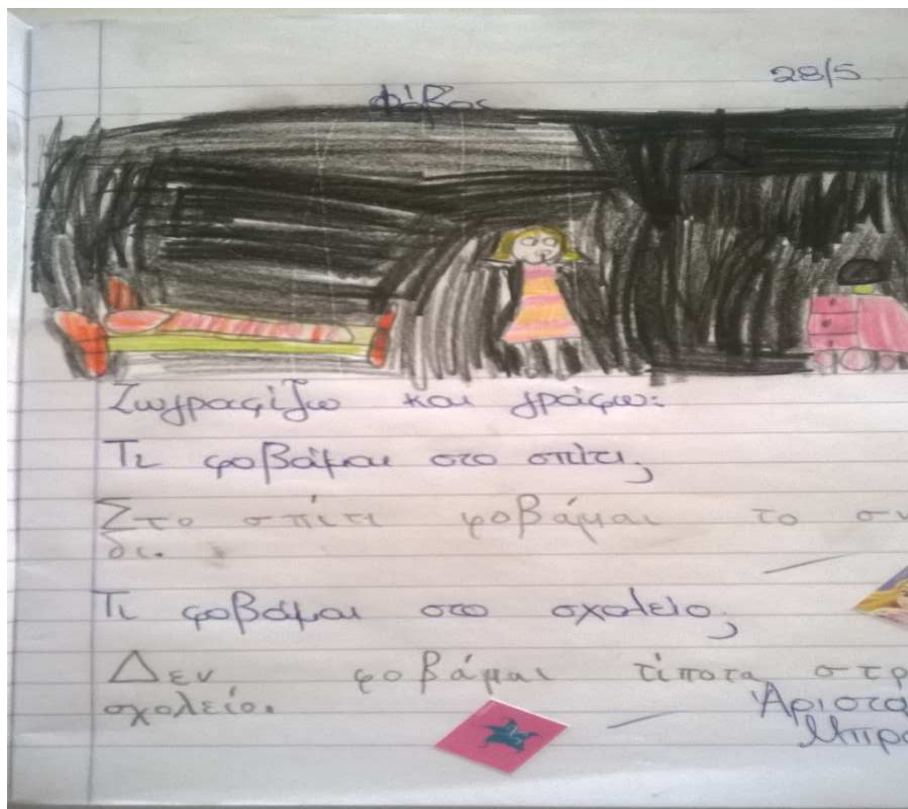 28/5
Φόβος
Ζωγραφίζω και γράφω:
Τι φοβάμαι στο σπίτι;
Στο σπίτι φοβάμαι το
δι.
Τι φοβάμαι στο σχολείο;
Δεν φοβάμαι τίποτα στο
σχολείο.